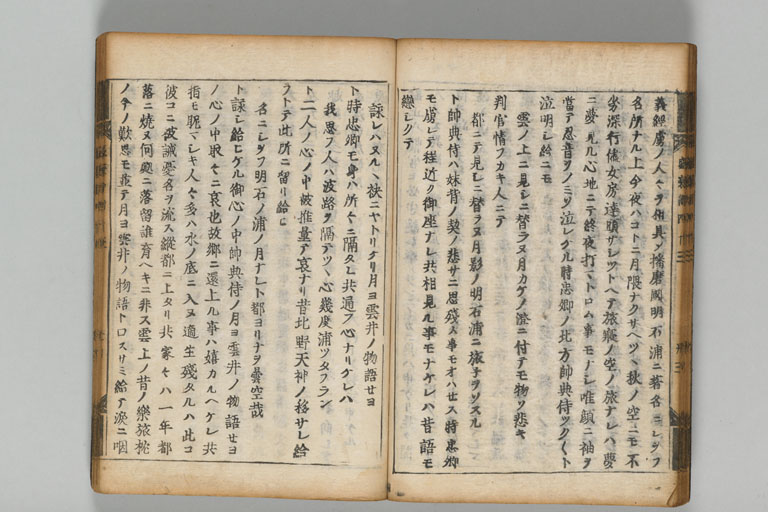 義經虜ノ人々ヲ相具シ播磨國明石浦ニ著名ニシヲフ
名所ナル上今夜ハコトニ月隈ナクサヘツヽ秋ノ空ニモ不
劣深行儘女房達頭サシツトヘテ旅寢ノ空ノ旅ナレハ夢
ニ夢見ル心地ニテ終夜打マトロム事モナシ唯顔ニ袖ヲ
當テ忍音ヲノミソ泣レケル時忠卿ノ北方帥典侍ツクヽト
泣明シ給ニモ
雲ノ上ニ見シニ替ラヌ月カケノ澄ニ付テモ物ソ悲キ
判官情フカキ人ニテ
都ニテ見シニ替ラヌ月影ノ明石浦ニ旅子ヲソスル
ト帥典侍ハ妹背ノ契ノ悲サニ思殘ス事モオハセス時忠卿
モ虜レテ程近ク御座ナレ共相見ル事モナケレハ昔語モ
戀シクテ
詠レハヌルヽ袂ニヤトリケリ月ヨ雲井ノ物語セヨ
ト時忠卿モ身ハ所々ニ隔タレ共通フ心ナリケレハ
我思フ人ハ波路ヲ隔テツヽ心幾度浦ツタフラン
ト二人ノ心ノ中被推量テ哀ナリ昔北野天神ノ移サレ給
フトテ此所ニ留リ給ヒ
名ニシヲフ明石ノ浦ノ月ナレト都ヨリナヲ雲空哉
ト詠シ給ヒケル御心ノ中帥典侍ノ月ヨ雲井ノ物語セヨ
ノ心ノ中取々ニ哀也故郷ニ還上ル事ハ嬉カルヘケレ共
指モ眤マシキ人々多ハ水ノ底ニ入ヌ適生殘タルハ此コ
彼コニ被誡憂名ヲ流ス縱都ニ上タリ共家々ハ一年都
落ニ燒ヌ何處ニ落留誰育ヘキニ非ス雲上ノ昔ノ樂旅枕
ノ今ノ歎思モ並テ月ヨ雲井ノ物語トロスサミ給テ涙ニ咽